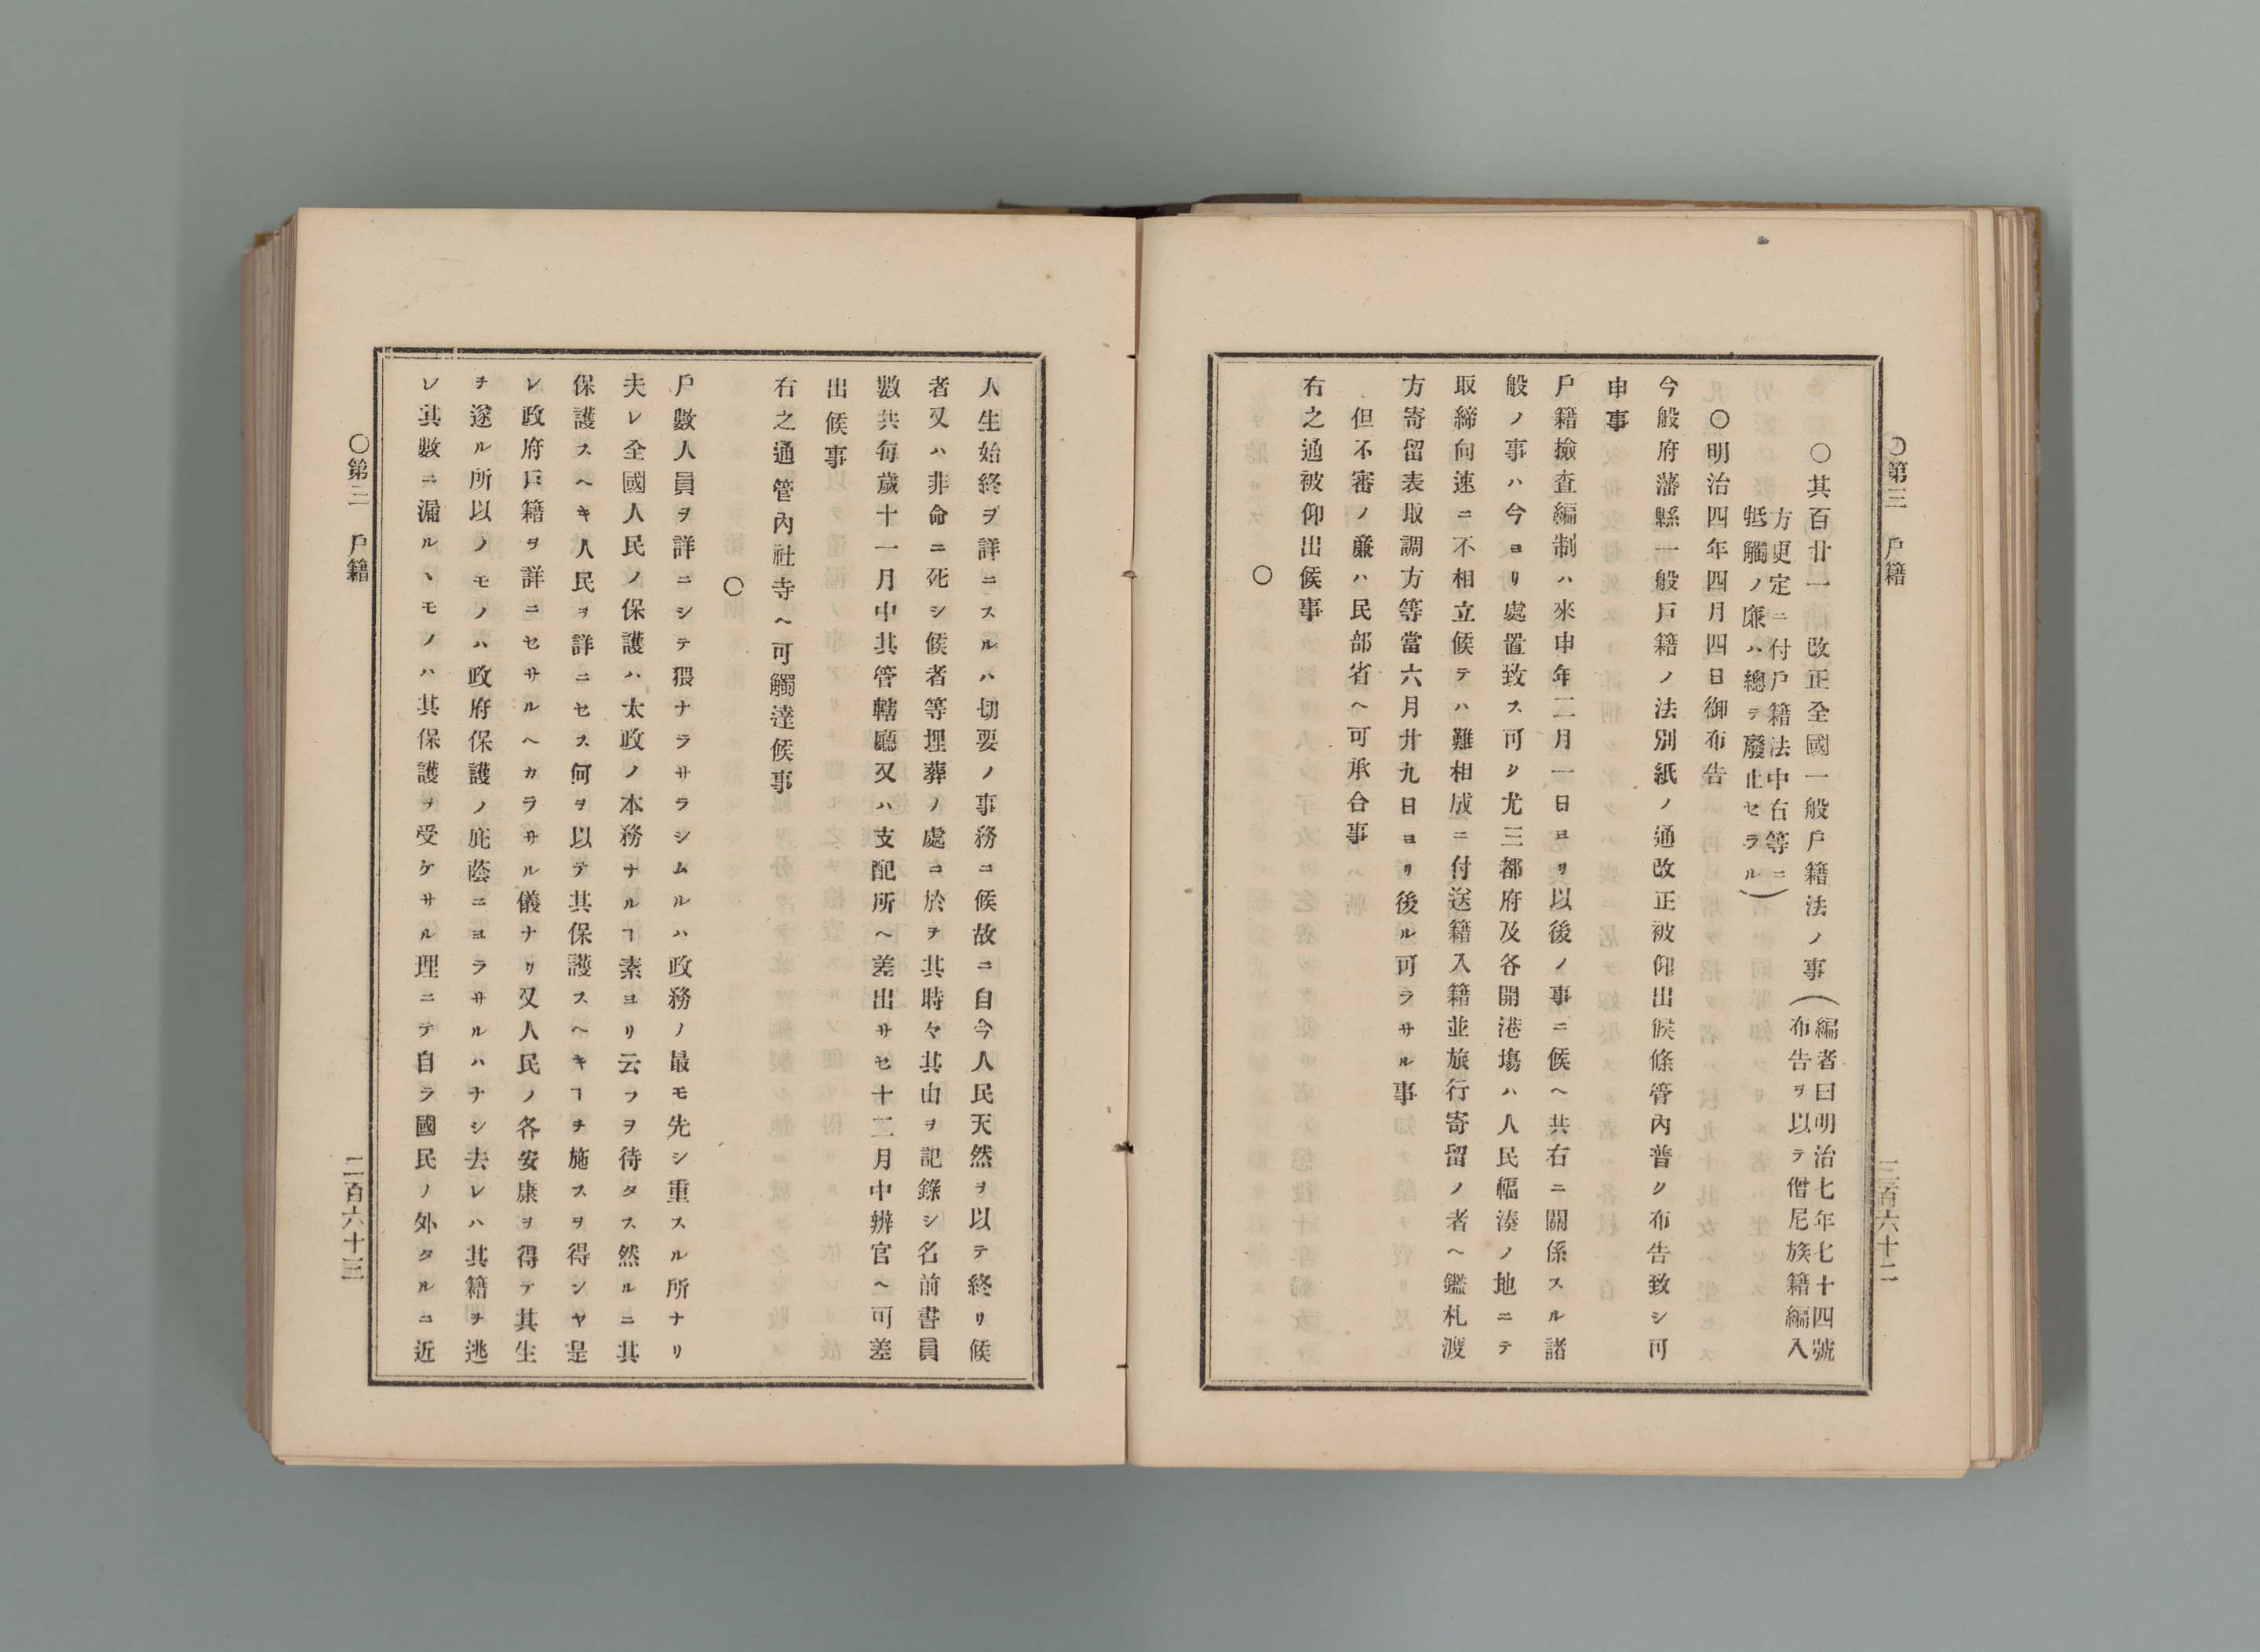 〇第三　戶籍
二百六十二
〇其百廿一　改正全國一般戶籍法ノ事(編者曰明治七年七十四號
布告ヲ以テ僧尼族籍編入
方更定ニ付戶籍法中右等ニ
牴觸ノ廉ハ總テ廢止セラル)
〇明治四年四月四日御布告
今般府藩縣一般戶籍ノ法別紙ノ通改正被仰出候條管內普ク布告致シ可
申事
戶籍撿査編制ハ來申年二月一日ヨリ以後ノ事ニ候ヘ共右ニ關係スル諸
般ノ事ハ今ヨリ處置致ス可シ尤三都府及各開港塲ハ人民幅湊ノ地ニテ
取締向速ニ不相立候テハ難相成ニ付送籍入籍並旅行寄留ノ者ヘ鑑札渡
方寄留表取調方等當六月廿九日ヨリ後ル可ラサル事
但不審ノ廉ハ民部省ヘ可承合事
右之通被仰出候事
〇
人生始終ヲ詳ニスルハ切要ノ事務ニ候故ニ自今人民天然ヲ以テ終リ候
者又ハ非命ニ死シ候者等埋葬ノ處ニ於ヲ其時々其由ヲ記錄シ名前書員
數共每歲十一月中其管轄廳又ハ支配所ヘ差出サセ十二月中辨官ヘ可差
出候事
右之通管內社寺ヘ可觸達候事
〇
戶數人員ヲ詳ニシテ猥ナラサラシムルハ政務ノ最モ先シ重スル所ナリ
夫レ全國人民ノ保護ハ太政ノ本務ナルヿ素ヨリ云フヲ待タス然ルニ其
保護スヘキ人民ヲ詳ニセス何ヲ以テ其保護スヘキヿヲ施スヲ得ンヤ是
レ政府戶籍ヲ詳ニセサルヘカラサル儀ナリ又人民ノ各安康ヲ得テ其生
ヲ遂ル所以ノモノハ政府保護ノ庇蔭ニヨラサルハナシ去レハ其籍ヲ逃
レ其數ニ漏ルヽモノハ其保護ヲ受ケサル理ニテ自ラ國民ノ外タルニ近
〇第三　戶籍
二百六十三